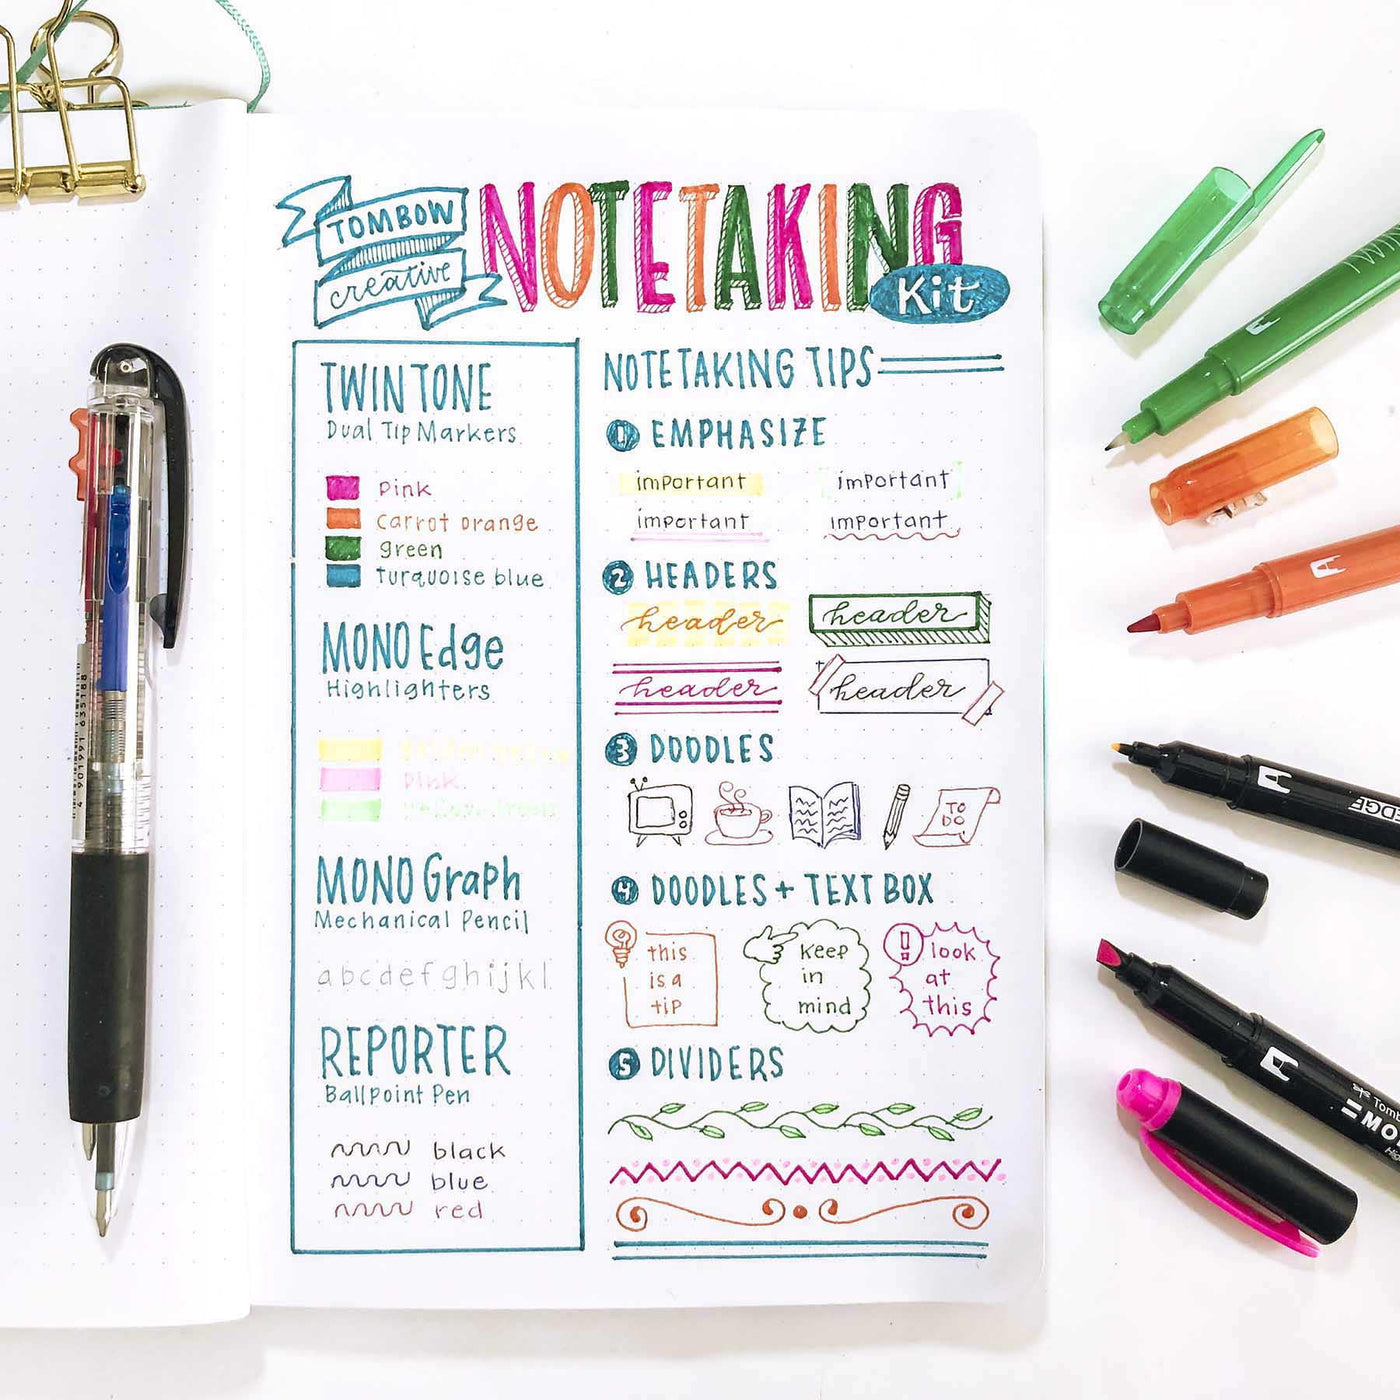 TOMBOW
creative
NOTETAKING
Kit
TWINTONE
Dual Tip Markers
Pink
Carrot orange
green
Turquoise blue
MONO Edge
Highlighters
Pink
MONO Graph
Mechanical Pencil
abcdefghijkl
REPORTER
BallPoint Pen
black
blue
red
NOTETAKING TIPS
1 EMPHASIZE
important important
important important
2 HEADERS
header header
header header
3 DOODLES
TO
DO
4 DOODLES + TEXT BOX
this
is a
tip
Keep
in
mind
!
look
at
this
5 DIVIDERS
4 901991 635188
EDGE
Tomb
MO